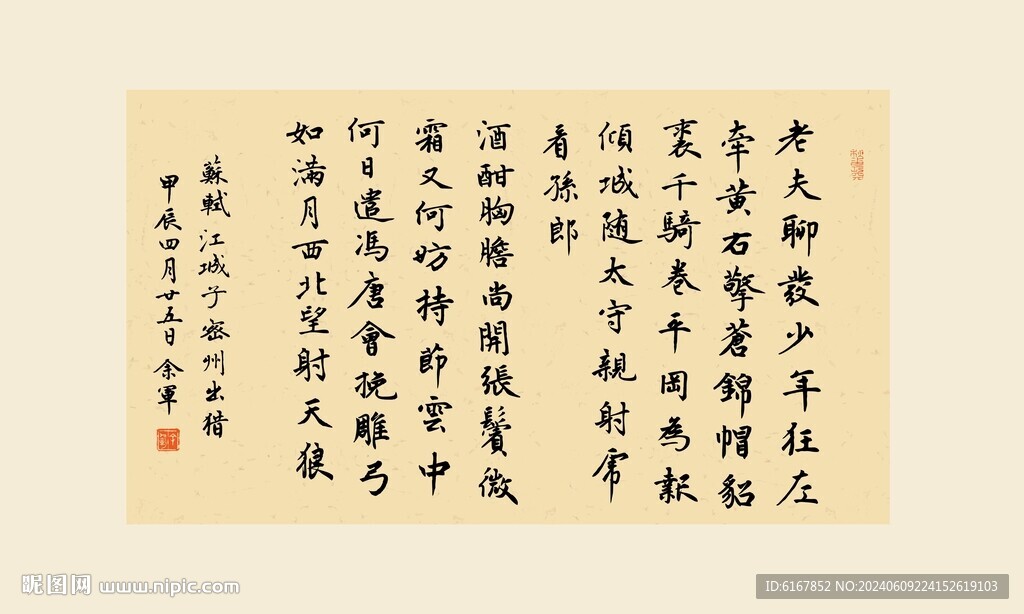 老夫聊發少年狂左
牽黃右擎蒼錦帽貂
裘千騎卷平岡為報
傾城随太守親射虎
看孫郎
酒酣胸膽尚開張鬢微
霜又何妨持節雲中
何日遣馮唐會挽雕弓
如滿月西北望射天狼
蘇軾江城子密州出猎
甲辰四月廿五日余軍
昵图网 www.nipic.com
ID:6167852 NO:20240609224152619103